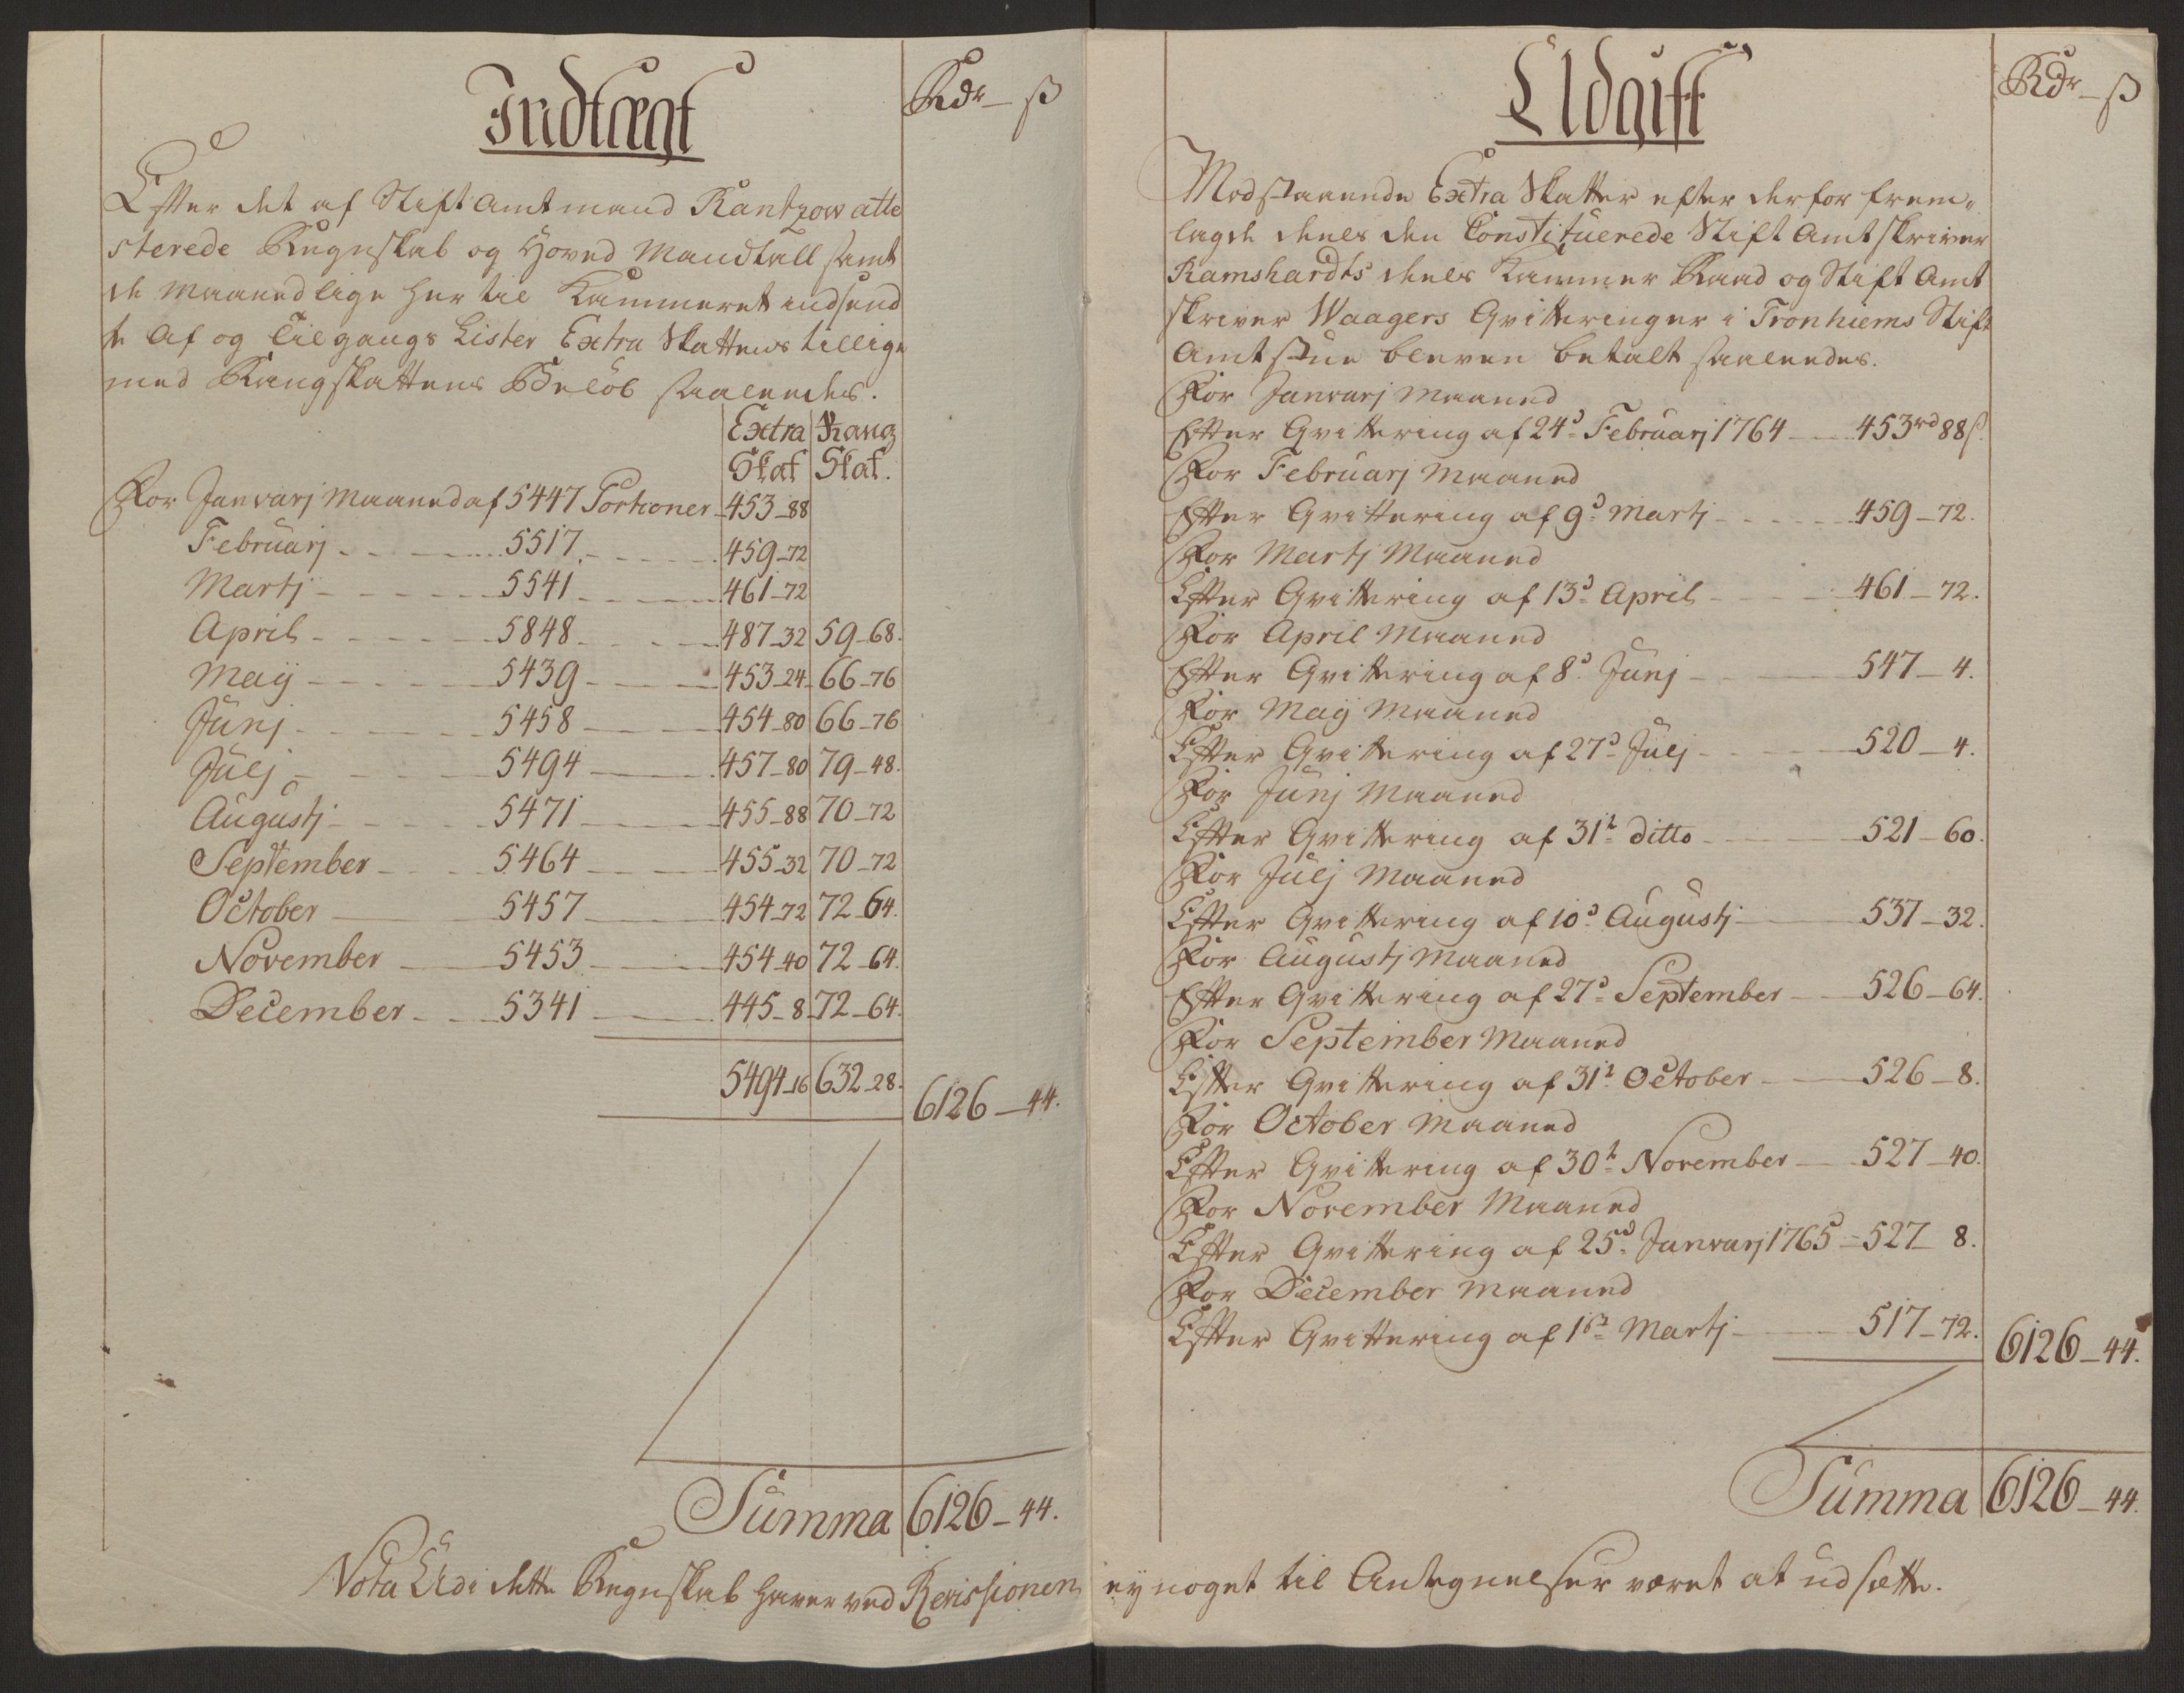 Indtægt
Rdr – ß
Efter det af Stift Amtmand Rantzow atte
sterede Regnskab og Hoved Mandtall samt
de maanedlige her til Kammeret indsend
te Af og Tilgangs Lister Extra Skattens tillige
med Rangskattens Beløb saaledes.
Extra Skat | Rang Skat.
For Janvarj Maaned af 5447 Portioner 453–88
Februarj 5517 459–72
Martj 5541 461–72
April 5848 487–32 59–68.
Maij 5439 453–24 66–76
Junj 5458 454–80 66–76
Julj 5494 457–80 79–48.
Augustj 5471 455–88 70–72
September 5464 455–32 70–72
October 5457 454–72 72–64.
November 5453 454–40 72–64.
December 5341 445–8 72–64.
5494–16 632–28. 6126–44.
Summa 6126–44.
Udgift
Rdr – ß
Modstaaende Extra Skatter efter derfor frem-
lagde deels den Constituerede Stift Amtskriver
Ramshardts deels Kammer Raad og Stift Amt
skriver Waagers Qvitteringer i Tronhiems Stift
Amtstue bleven betalt saaledes.
For Janvarj Maaned
Efter Qvittering af 24d Februarj 1764 453rd 88ß.
For Februarj Maaned
Efter Qvittering af 9d Martj 459–72.
For Martj Maaned
Efter Qvittering af 13d April 461–72.
For April Maaned
Efter Qvittering af 8d Junj 547–4.
For Maij Maaned
Efter Qvittering af 27d Julj 520–4.
For Junj Maaned
Efter Qvittering af 31t ditto 521–60.
For Julj Maaned
Efter Qvittering af 10d Augustj 537–32.
For Augustj Maaned
Efter Qvittering af 27d September 526–64.
For September Maaned
Efter Qvittering af 31t October 526–8.
For October Maaned
Efter Qvittering af 30t November 527–40.
For November Maaned
Efter Qvittering af 25d Janvarj 1765 527–8.
For December Maaned
Efter Qvittering af 1st Martj 517–72. 6126–44.
Summa 6126–44.
Nota Udi dette Regnskab haver ved Revissionen ey noget til Antegnelser været at udsætte.